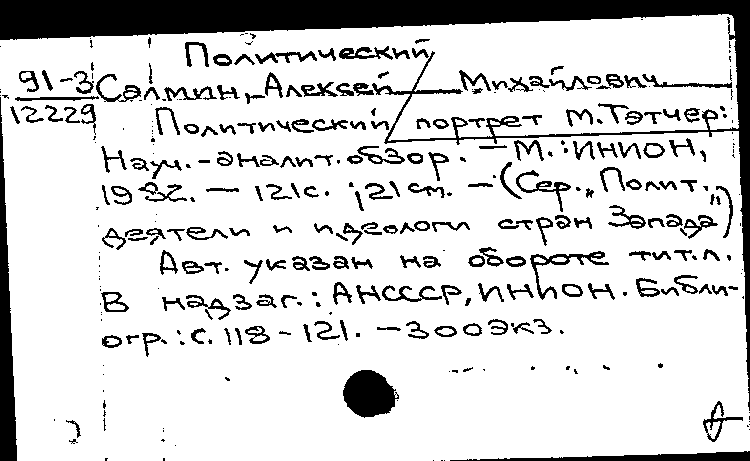 Политический
91-3 Салмин, Алексей Михайлович.
12229 Политический портрет М.Тэтчер:
Науч.-аналит.обзор. — М.:ИНИОН,
1982. — 121с. ; 21см. — (Сер. "Полит.
деятели и идеологи стран Запада")
Авт. указан на обороте тит.л.
В надзаг.: АНСССР, ИНИОН. Библи-
огр.: с. 118-121. — 300экз.